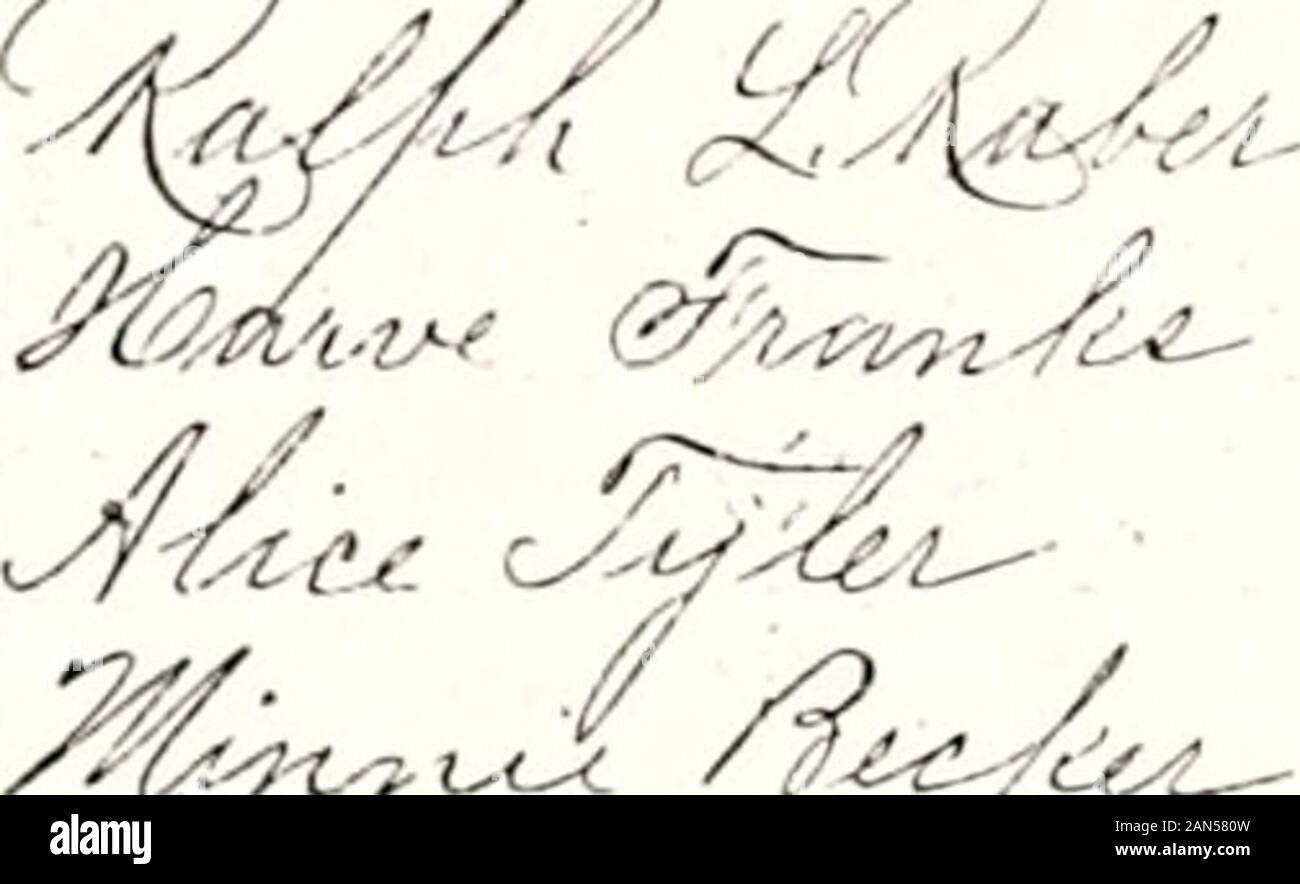 Ralph L. Raber
Harve Franks
Alice Tyler
Minnie Becker
alamy
Image ID: 2AN580W
www.alamy.com